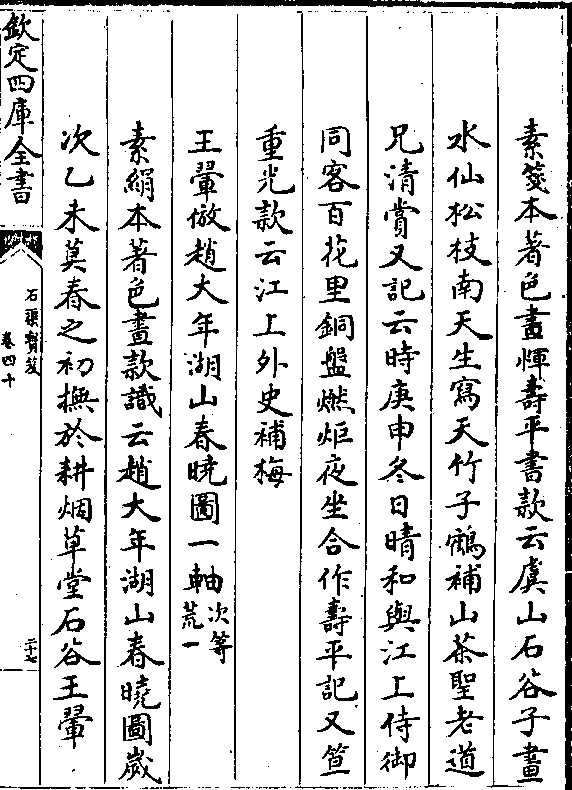 素箋本著色畫惲壽平書款云虞山石谷子畫
水仙松枝南天生寫天竹子鶴補山茶聖老道
兄清賞又記云時庚申冬日晴和與江上侍御
同客百花里銅盤燃炬夜坐合作壽平記又笪
重光款云江上外史補梅
王翬倣趙大年湖山春曉圖一軸次等荒一
素絹本著色畫款識云趙大年湖山春曉圖歲
次乙未莫春之初撫於耕烟草堂石谷王翬
欽定四庫全書
石渠寶笈
卷四十
二十七